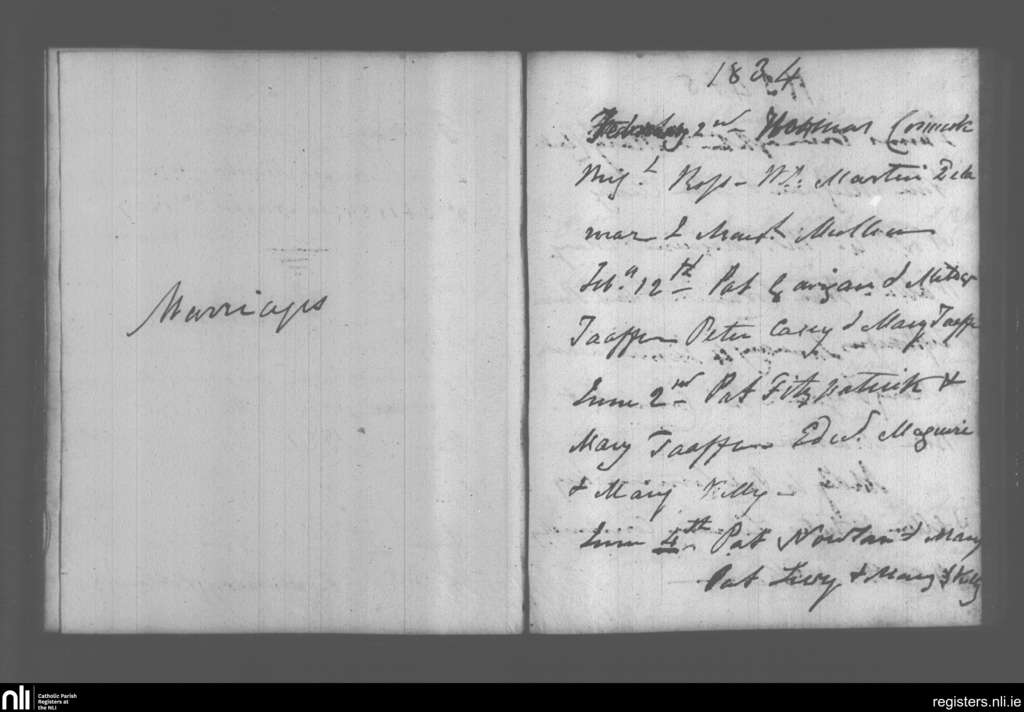 Marriages
1834
February 2nd Thomas Cormick
Brigt. Ross - Ws. Martin Dela
mar & Margt. Mullen
Feb. 12th Pat Gavigan &
Taaffe Peter Casey & Mary Taaffe
June 2nd Pat Fitzpatrick &
Mary Taaffe Edwd. Maguire
& Mary Kelly -
June 4th Pat Nowlan & Mary
Pat & Mary Kelly
nli
Catholic Parish
Registers at
the NLI
registers.nli.ie